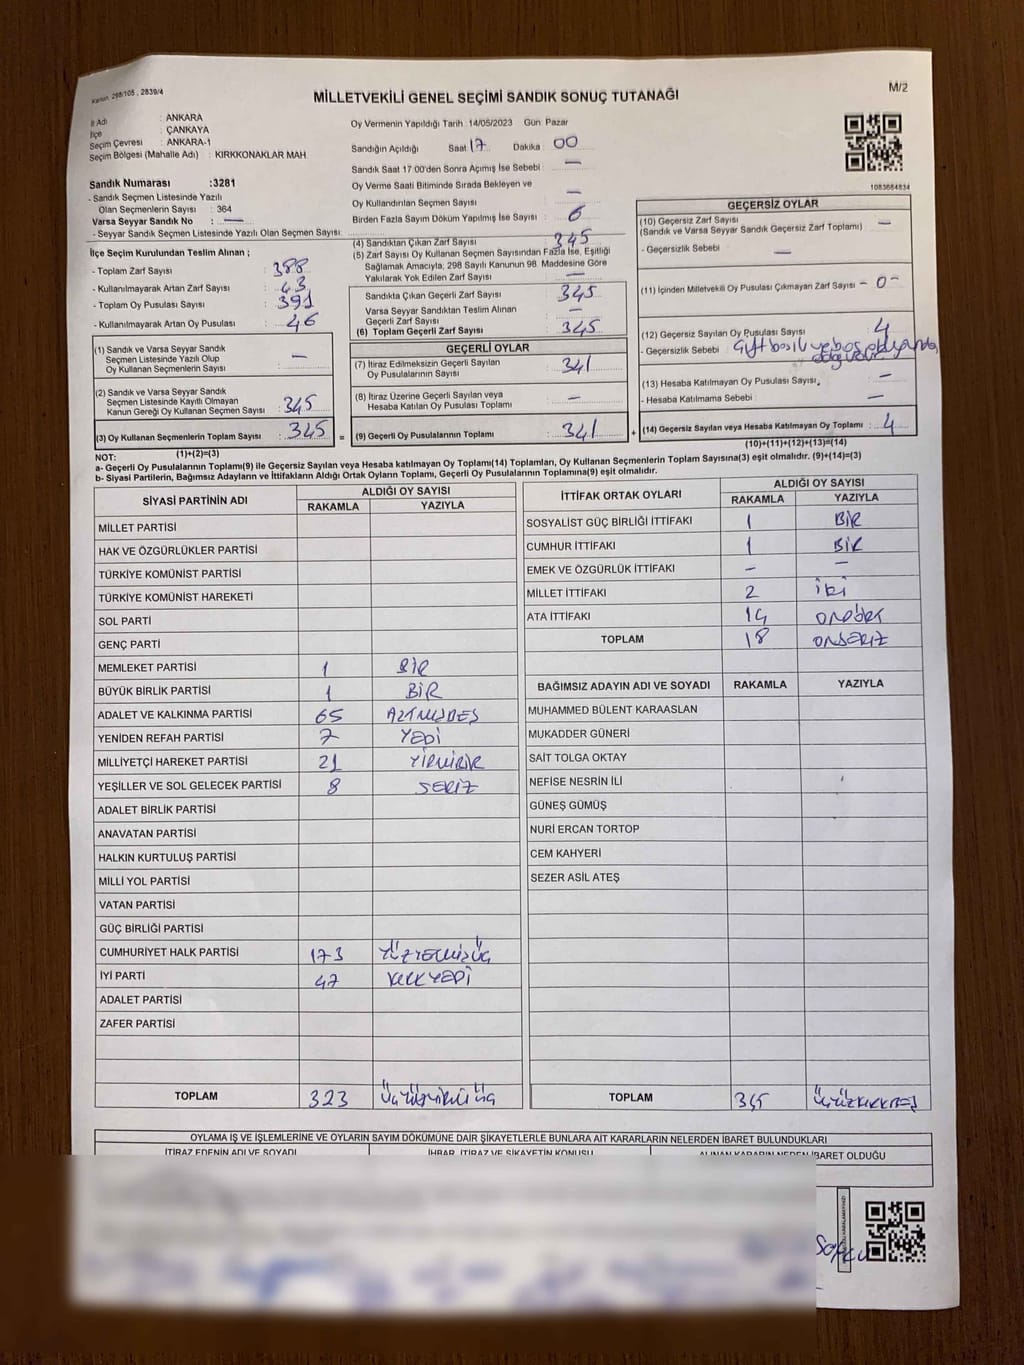 Kanun 298/105 . 2839/4
MİLLETVEKİLİ GENEL SEÇİMİ SANDIK SONUÇ TUTANAĞI
M/2
İl Adı : ANKARA
İlçe : ÇANKAYA
Seçim Çevresi : ANKARA-1
Seçim Bölgesi (Mahalle Adı) : KIRKKONAKLAR MAH.
Sandık Numarası :3281
- Sandık Seçmen Listesinde Yazılı
Olan Seçmenlerin Sayısı : 364
Varsa Seyyar Sandık No : —
- Seyyar Sandık Seçmen Listesinde Yazılı Olan Seçmen Sayısı:
İlçe Seçim Kurulundan Teslim Alınan ;
- Toplam Zarf Sayısı : 388
- Kullanılmayarak Artan Zarf Sayısı : 43
- Toplam Oy Pusulası Sayısı : 391
- Kullanılmayarak Artan Oy Pusulası : 46
(1) Sandık ve Varsa Seyyar Sandık
Seçmen Listesinde Yazılı Olup
Oy Kullanan Seçmenlerin Sayısı : —
(2) Sandık ve Varsa Seyyar Sandık
Seçmen Listesinde Kayıtlı Olmayan
Kanun Gereği Oy Kullanan Seçmen Sayısı : 345
(3) Oy Kullanan Seçmenlerin Toplam Sayısı : 345
(1)+(2)=(3)
Oy Vermenin Yapıldığı Tarih :14/05/2023 Gün: Pazar
Sandığın Açıldığı Saat 17 Dakika 00
Sandık Saat 17:00'den Sonra Açımış İse Sebebi : —
Oy Verme Saati Bitiminde Sırada Bekleyen ve
Oy Kullandırılan Seçmen Sayısı : —
Birden Fazla Sayım Döküm Yapılmış İse Sayısı : 6
(4) Sandıktan Çıkan Zarf Sayısı : 345
(5) Zarf Sayısı Oy Kullanan Seçmen Sayısından Fazla İse, Eşitliği
Sağlamak Amacıyla, 298 Sayılı Kanunun 98. Maddesine Göre
Yakılarak Yok Edilen Zarf Sayısı : —
Sandıkta Çıkan Geçerli Zarf Sayısı : 345
Varsa Seyyar Sandıktan Teslim Alınan
Geçerli Zarf Sayısı : —
(6) Toplam Geçerli Zarf Sayısı : 345
GEÇERLİ OYLAR
(7) İtiraz Edilmeksizin Geçerli Sayılan
Oy Pusulalarının Sayısı : 341
(8) İtiraz Üzerine Geçerli Sayılan veya
Hesaba Katılan Oy Pusulası Toplamı : —
= (9) Geçerli Oy Pusulalarının Toplamı : 341
1083684834
GEÇERSİZ OYLAR
(10) Geçersiz Zarf Sayısı : —
(Sandık ve Varsa Seyyar Sandık Geçersiz Zarf Toplamı)
- Geçersizlik Sebebi : —
(11) İçinden Milletvekili Oy Pusulası Çıkmayan Zarf Sayısı - 0 -
(12) Geçersiz Sayılan Oy Pusulası Sayısı : 4
- Geçersizlik Sebebi : Çift basılı ve boş
(13) Hesaba Katılmayan Oy Pusulası Sayısı : —
- Hesaba Katılmama Sebebi : —
+ (14) Geçersiz Sayılan veya Hesaba Katılmayan Oy Toplamı : 4
(10)+(11)+(12)+(13)=(14)
NOT:
a- Geçerli Oy Pusulalarının Toplamı(9) ile Geçersiz Sayılan veya Hesaba katılmayan Oy Toplamı(14) Toplamları, Oy Kullanan Seçmenlerin Toplam Sayısına(3) eşit olmalıdır. (9)+(14)=(3)
b- Siyasi Partilerin, Bağımsız Adayların ve İttifakların Aldığı Ortak Oyların Toplamı, Geçerli Oy Pusulalarının Toplamına(9) eşit olmalıdır.
SİYASİ PARTİNİN ADI ALDIĞI OY SAYISI
RAKAMLA YAZIYLA
MİLLET PARTİSİ
HAK VE ÖZGÜRLÜKLER PARTİSİ
TÜRKİYE KOMÜNİST PARTİSİ
TÜRKİYE KOMÜNİST HAREKETİ
SOL PARTİ
GENÇ PARTİ
MEMLEKET PARTİSİ 1 BİR
BÜYÜK BİRLİK PARTİSİ 1 BİR
ADALET VE KALKINMA PARTİSİ 65 ALTMIŞBEŞ
YENİDEN REFAH PARTİSİ 7 YEDİ
MİLLİYETÇİ HAREKET PARTİSİ 21 YİRMİBİR
YEŞİLLER VE SOL GELECEK PARTİSİ 8 SEKİZ
ADALET BİRLİK PARTİSİ
ANAVATAN PARTİSİ
HALKIN KURTULUŞ PARTİSİ
MİLLİ YOL PARTİSİ
VATAN PARTİSİ
GÜÇ BİRLİĞİ PARTİSİ
CUMHURİYET HALK PARTİSİ 173 YÜZYETMİŞÜÇ
İYİ PARTİ 47 KIRKYEDİ
ADALET PARTİSİ
ZAFER PARTİSİ
TOPLAM 323 ÜÇYÜZYİRMİÜÇ
İTTİFAK ORTAK OYLARI ALDIĞI OY SAYISI
RAKAMLA YAZIYLA
SOSYALİST GÜÇ BİRLİĞİ İTTİFAKI 1 BİR
CUMHUR İTTİFAKI 1 BİR
EMEK VE ÖZGÜRLÜK İTTİFAKI — —
MİLLET İTTİFAKI 2 İKİ
ATA İTTİFAKI 14 ONDÖRT
TOPLAM 18 ONSEKİZ
BAĞIMSIZ ADAYIN ADI VE SOYADI RAKAMLA YAZIYLA
MUHAMMED BÜLENT KARAASLAN
MUKADDER GÜNERİ
SAİT TOLGA OKTAY
NEFİSE NESRİN İLİ
GÜNEŞ GÜMÜŞ
NURİ ERCAN TORTOP
CEM KAHYERİ
SEZER ASİL ATEŞ
TOPLAM 345 ÜÇYÜZKIRKBEŞ
OYLAMA İŞ VE İŞLEMLERİNE VE OYLARIN SAYIM DÖKÜMÜNE DAİR ŞİKAYETLERLE BUNLARA AİT KARARLARIN NELERDEN İBARET BULUNDUKLARI
İTİRAZ EDENİN ADI VE SOYADI İHBAR, İTİRAZ VE ŞİKAYETİN KONUSU ALINAN KARARIN NEDEN İBARET OLDUĞU